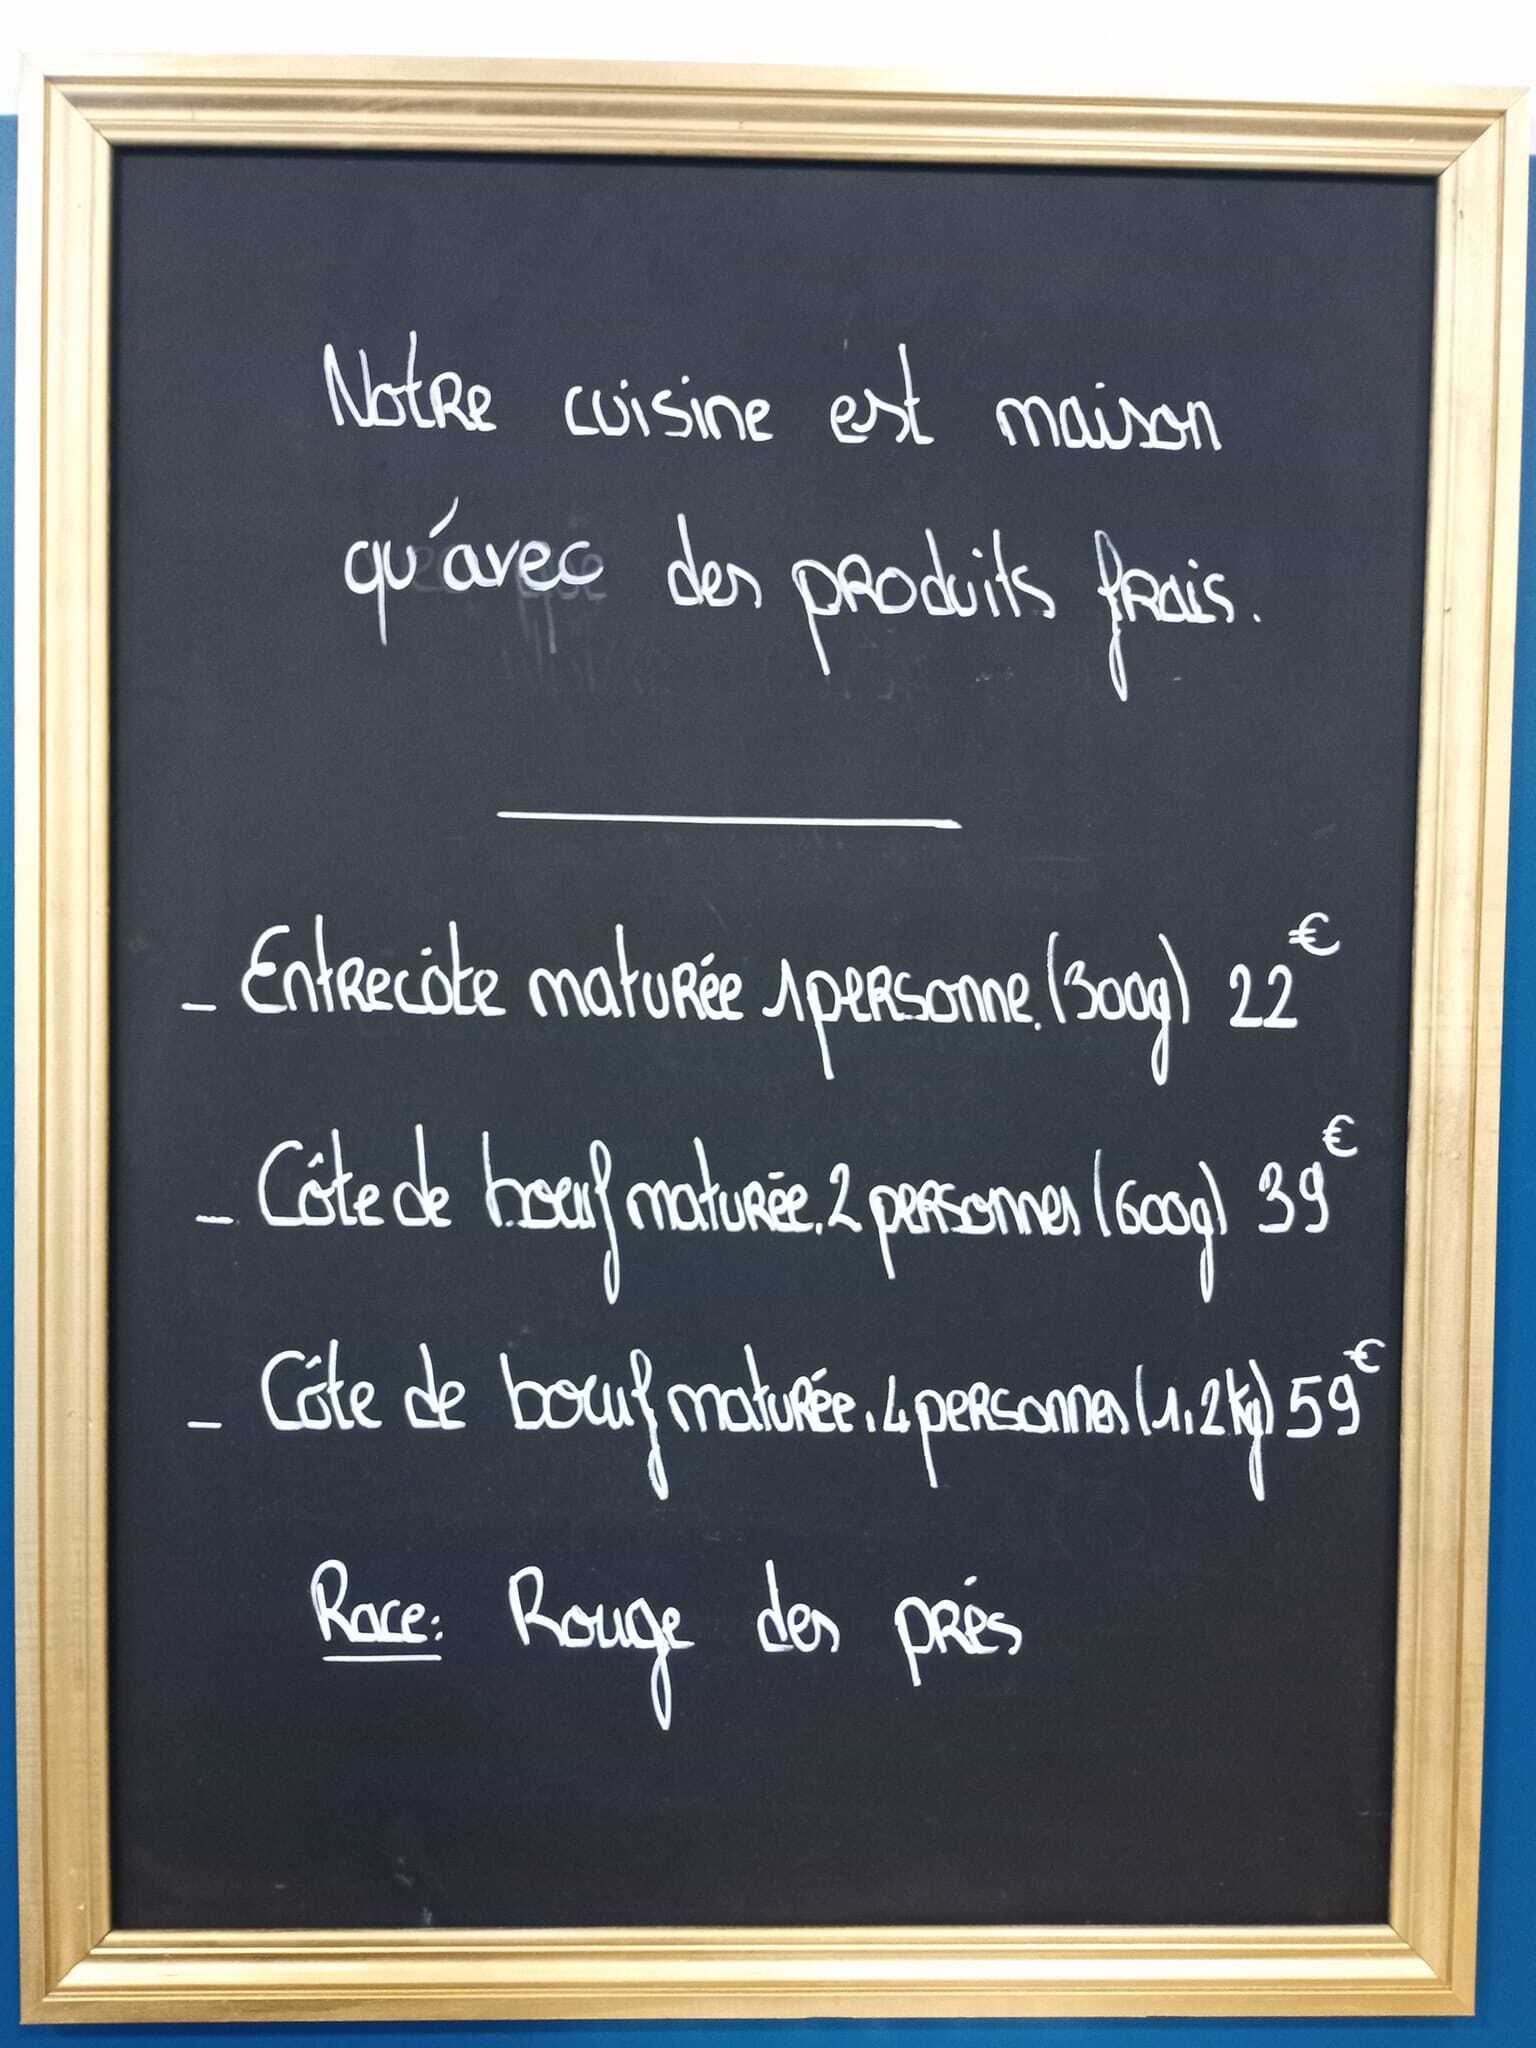 Notre cuisine est maison
qu'avec des produits frais.
- Entrecôte maturée 1 personne. (300g) 22€
- Côte de boeuf maturée. 2 personnes (600g) 39€
- Côte de boeuf maturée. 4 personnes (1,2kg) 59€
Race: Rouge des prés